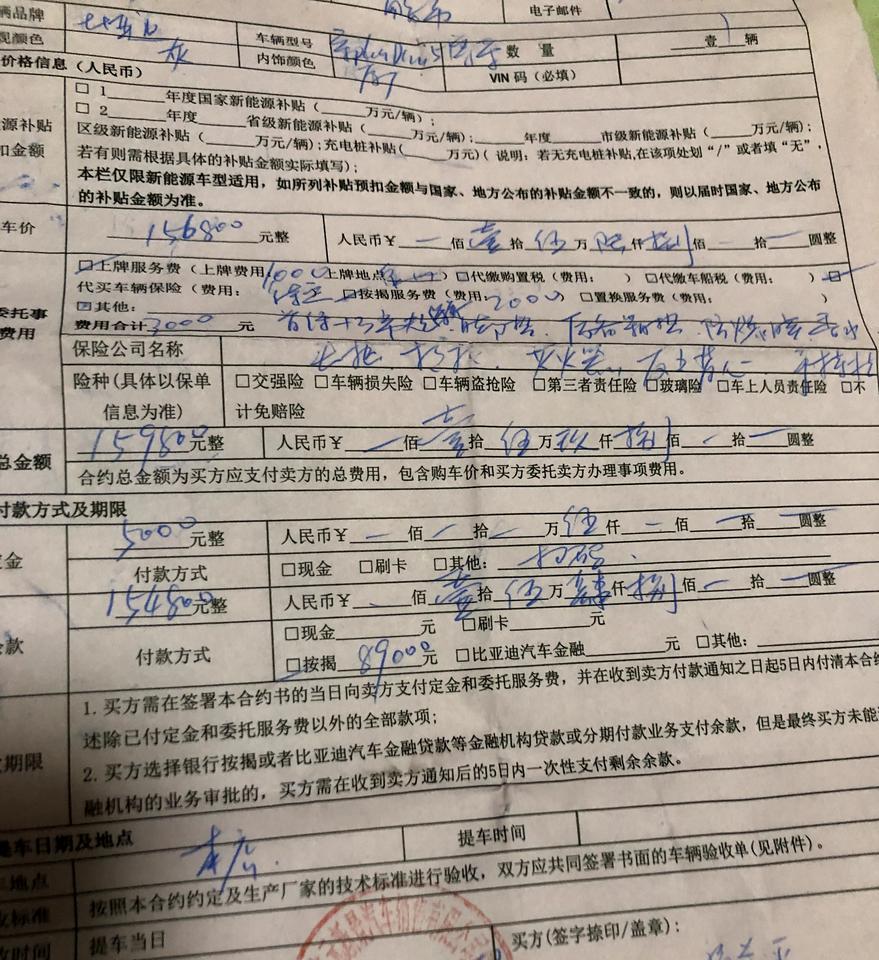 辆品牌 电子邮件
观颜色 灰 车辆型号 数 量 壹 辆
内饰颜色 VIN 码（必填）
价格信息（人民币）
□ 1______年度国家新能源补贴（______万元/辆）；
□ 2______年度______省级新能源补贴（______万元/辆）；
源补贴 区级新能源补贴（______万元/辆）；充电桩补贴（______万元）（ 说明：若无充电桩补贴,在该项处划“/”或者填“无”，
______年度______市级新能源补贴（______万元/辆)；
扣金额 若有则需根据具体的补贴金额实际填写)；
本栏仅限新能源车型适用，如所列补贴预扣金额与国家、地方公布的补贴金额不一致的，则以届时国家、地方公布
的补贴金额为准。
车价 156800 元整 人民币￥ 一 佰 壹 拾 伍 万 陆 仟 捌 佰 一 拾 一 圆整
□上牌服务费（上牌费用 1000 上牌地点 ） □代缴购置税（费用： ） □代缴车船税（费用： ） □
代买车辆保险（费用： 待定 □按揭服务费（费用： 2000 ） □置换服务费(费用： ）
委托事 □其他：
费用 费用合计 3000 元
保险公司名称 灭火器
险种(具体以保单 □交强险 □车辆损失险 □车辆盗抢险 □第三者责任险 □玻璃险 □车上人员责任险 □不
信息为准) 计免赔险
总金额 159800 元整 人民币￥ 一 佰 壹 拾 伍 万 玖 仟 捌 佰 一 拾 一 圆整
合约总金额为买方应支付卖方的总费用，包含购车价和买方委托卖方办理事项费用。
付款方式及期限
金 5000 元整 人民币￥ 一 佰 一 拾 一 万 伍 仟 一 佰 一 拾 一 圆整
付款方式 □现金 □刷卡 □其他： 扫码
余款 元整 人民币￥ 佰 壹 拾 伍 万 仟 捌 佰 一 拾 一 圆整
付款方式 □现金______元 □刷卡______元
□按揭 89000 元 □比亚迪汽车金融______元 □其他：
1. 买方需在签署本合约书的当日向卖方支付定金和委托服务费，并在收到卖方付款通知之日起5日内付清本合约
述除已付定金和委托服务费以外的全部款项；
期限 2. 买方选择银行按揭或者比亚迪汽车金融贷款等金融机构贷款或分期付款业务支付余款，但是最终买方未能
融机构的业务审批的，买方需在收到卖方通知后的5日内一次性支付剩余余款。
提车日期及地点
地点 本店 提车时间
标准 按照本合约约定及生产厂家的技术标准进行验收，双方应共同签署书面的车辆验收单(见附件)。
时间 提车当日 买方(签字捺印/盖章)：